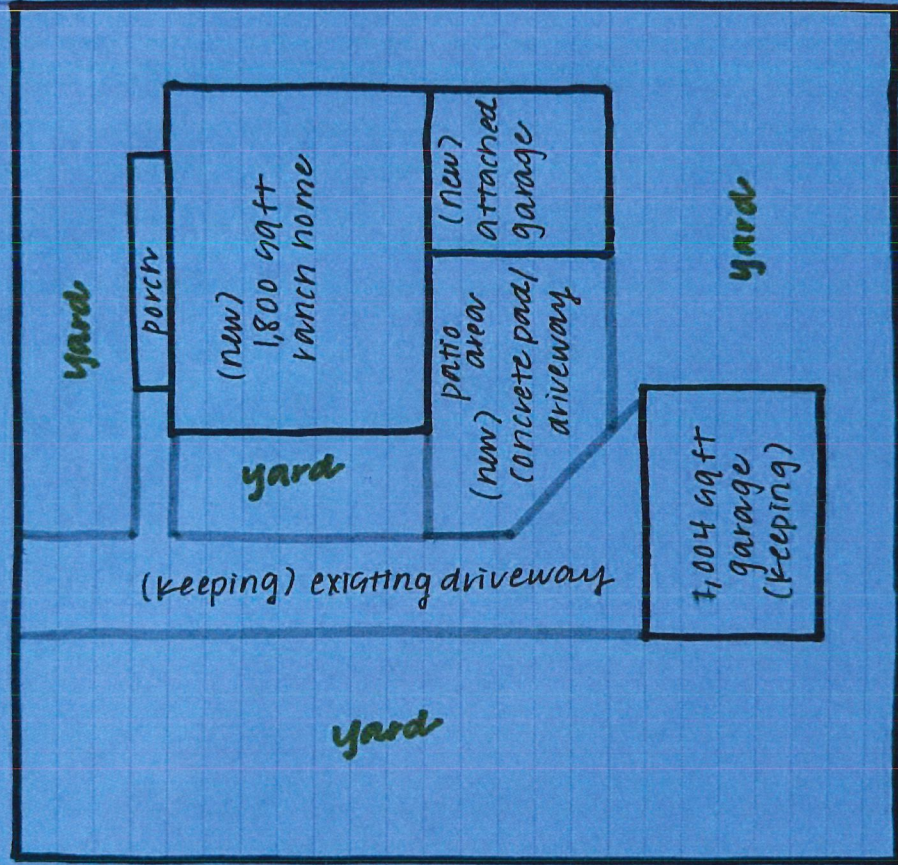 yard
porch
(new)
1,800 sqft
ranch home
(new)
attached
garage
yard
yard
patio
area
(new)
concrete pad/
driveway
(keeping) existing driveway
7,004 sqft
garage
(keeping)
yard